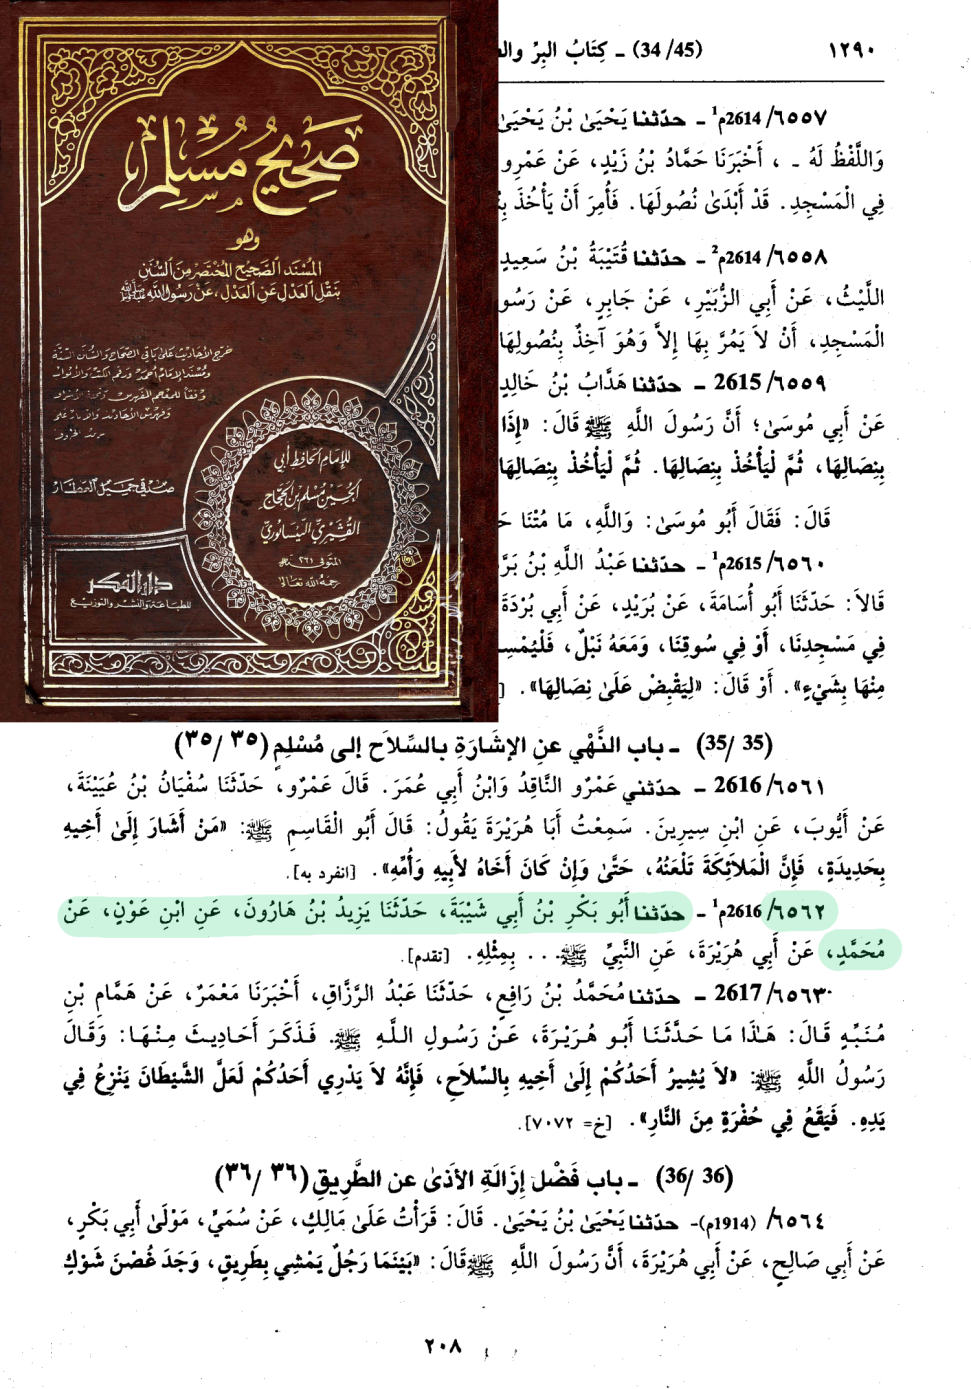 صَحِيحُ مُسْلِم
وهو
المُسْنَد الصَّحِيح المُخْتَصَر مِنَ السُّنَنِ
بنَقْلِ العَدْلِ عَنِ العَدْلِ، عَنْ رَسُولِ اللَّه ﷺ
خرج الأحاديث على باقي الصحاح والسنن الستة
ومسند الإمام أحمد ورقم الكتب والأبواب
وفقاً للمعجم المفهرس وتحفة الأشراف
صدقي جميل العطار
للإمام الحافظ أبي
الحسين مسلم بن الحجاج
القشيري النيسابوري
المتوفى ٢٦١ هـ
رحمه الله تعالى
دار الفكر
للطباعة والنشر والتوزيع
١٢٩٠ (34/45) ـ كِتَابُ البِرِّ
٦٥٥٧/ 2614م¹ ـ حدّثنا يَحْيَىٰ بْنُ يَحْيَىٰ
وَاللَّفْظُ لَهُ ـ ، أَخْبَرَنَا حَمَّادُ بْنُ زَيْدٍ، عَنْ عَمْرِو
فِي الْمَسْجِدِ. قَدْ أَبْدَىٰ نُصُولَهَا. فَأُمِرَ أَنْ يَأْخُذَ
٦٥٥٨/ 2614م² ـ حدّثنا قُتَيْبَةُ بْنُ سَعِيدٍ
اللَّيْثُ، عَنْ أَبِي الزُّبَيْرِ، عَنْ جَابِرٍ، عَنْ
الْمَسْجِدِ، أَنْ لاَ يَمُرَّ بِهَا إِلاَّ وَهُوَ آخِذٌ بِنُصُولِهَا
٦٥٥٩/ 2615 ـ حدّثنا هَدَّابُ بْنُ خَالِدٍ
عَنْ أَبِي مُوسَىٰ؛ أَنَّ رَسُولَ اللَّهِ ﷺ قَالَ: «إِذَا
بِنِصَالِهَا، ثُمَّ لْيَأْخُذْ بِنِصَالِهَا. ثُمَّ لْيَأْخُذْ بِنِصَالِهَا
قَالَ: فَقَالَ أَبُو مُوسَىٰ: وَاللَّهِ، مَا مُتْنَا
٦٥٦٠/ 2615م¹ ـ حدّثنا عَبْدُ اللَّهِ بْنُ
قَالاَ: حَدَّثَنَا أَبُو أُسَامَةَ، عَنْ بُرَيْدٍ، عَنْ أَبِي بُرْدَةَ
فِي مَسْجِدِنَا، أَوْ فِي سُوقِنَا، وَمَعَهُ نَبْلٌ،
مِنْهَا بِشَيْءٍ». أَوْ قَالَ: «لِيَقْبِضْ عَلَىٰ نِصَالِهَا».
(35/ 35) ـ باب النَّهْي عنِ الإشارَةِ بالسِّلاَحِ إلى مُسْلِمٍ (٣٥/ ٣٥)
٦٥٦١/ 2616 ـ حدّثني عَمْرٌو النَّاقِدُ وَابْنُ أَبِي عُمَرَ. قَالَ عَمْرٌو، حَدَّثَنَا سُفْيَانُ بْنُ عُيَيْنَةَ،
عَنْ أَيُّوبَ، عَنِ ابْنِ سِيرِينَ. سَمِعْتُ أَبَا هُرَيْرَةَ يَقُولُ: قَالَ أَبُو الْقَاسِمِ ﷺ: «مَنْ أَشَارَ إِلَىٰ أَخِيهِ
بِحَدِيدَةٍ، فَإِنَّ الْمَلاَئِكَةَ تَلْعَنُهُ، حَتَّىٰ وَإِنْ كَانَ أَخَاهُ لأَبِيهِ وَأُمِّهِ». [انفرد به].
٦٥٦٢/ 2616م¹ ـ حدّثنا أَبُو بَكْرِ بْنُ أَبِي شَيْبَةَ، حَدَّثَنَا يَزِيدُ بْنُ هَارُونَ، عَنِ ابْنِ عَوْنٍ، عَنْ
مُحَمَّدٍ، عَنْ أَبِي هُرَيْرَةَ، عَنِ النَّبِيِّ ﷺ... بِمِثْلِهِ. [تقدم].
٦٥٦٣/ 2617 ـ حدّثنا مُحَمَّدُ بْنُ رَافِعٍ، حَدَّثَنَا عَبْدُ الرَّزَّاقِ، أَخْبَرَنَا مَعْمَرٌ، عَنْ هَمَّامِ بْنِ
مُنَبِّهٍ قَالَ: هَٰذَا مَا حَدَّثَنَا أَبُو هُرَيْرَةَ، عَنْ رَسُولِ اللَّهِ ﷺ. فَذَكَرَ أَحَادِيثَ مِنْهَا: وَقَالَ
رَسُولُ اللَّهِ ﷺ: «لاَ يُشِيرُ أَحَدُكُمْ إِلَىٰ أَخِيهِ بِالسِّلاَحِ، فَإِنَّهُ لاَ يَدْرِي أَحَدُكُمْ لَعَلَّ الشَّيْطَانَ يَنْزِعُ فِي
يَدِهِ. فَيَقَعُ فِي حُفْرَةٍ مِنَ النَّارِ». [خ= ٧٠٧٢].
(36/ 36) ـ باب فَضْلِ إِزَالَةِ الأَذَىٰ عن الطَّرِيقِ (٣٦/ ٣٦)
٦٥٦٤/ (1914م)ـ حدّثنا يَحْيَىٰ بْنُ يَحْيَىٰ. قَالَ: قَرَأْتُ عَلَىٰ مَالِكٍ، عَنْ سُمَيٍّ، مَوْلَىٰ أَبِي بَكْرٍ،
عَنْ أَبِي صَالِحٍ، عَنْ أَبِي هُرَيْرَةَ، أَنَّ رَسُولَ اللَّهِ ﷺ قَالَ: «بَيْنَمَا رَجُلٌ يَمْشِي بِطَرِيقٍ، وَجَدَ غُصْنَ شَوْكٍ
٢٠٨